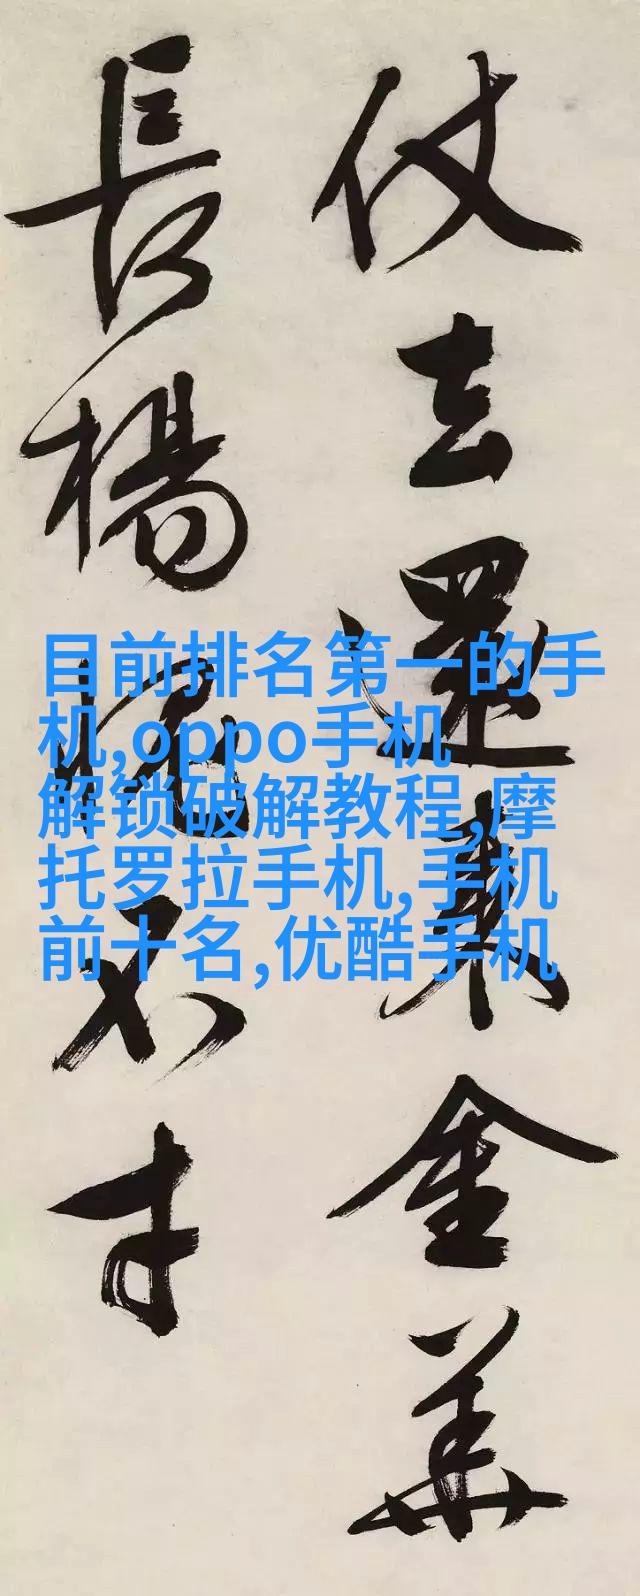 仗去還来金華
長楊愧不才
目前排名第一的手
机,oppo手机
解锁破解教程,摩
托罗拉手机,手机
前十名,优酷手机